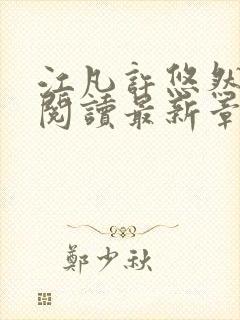 江凡許悠然
閱讀最新章
鄭少秋